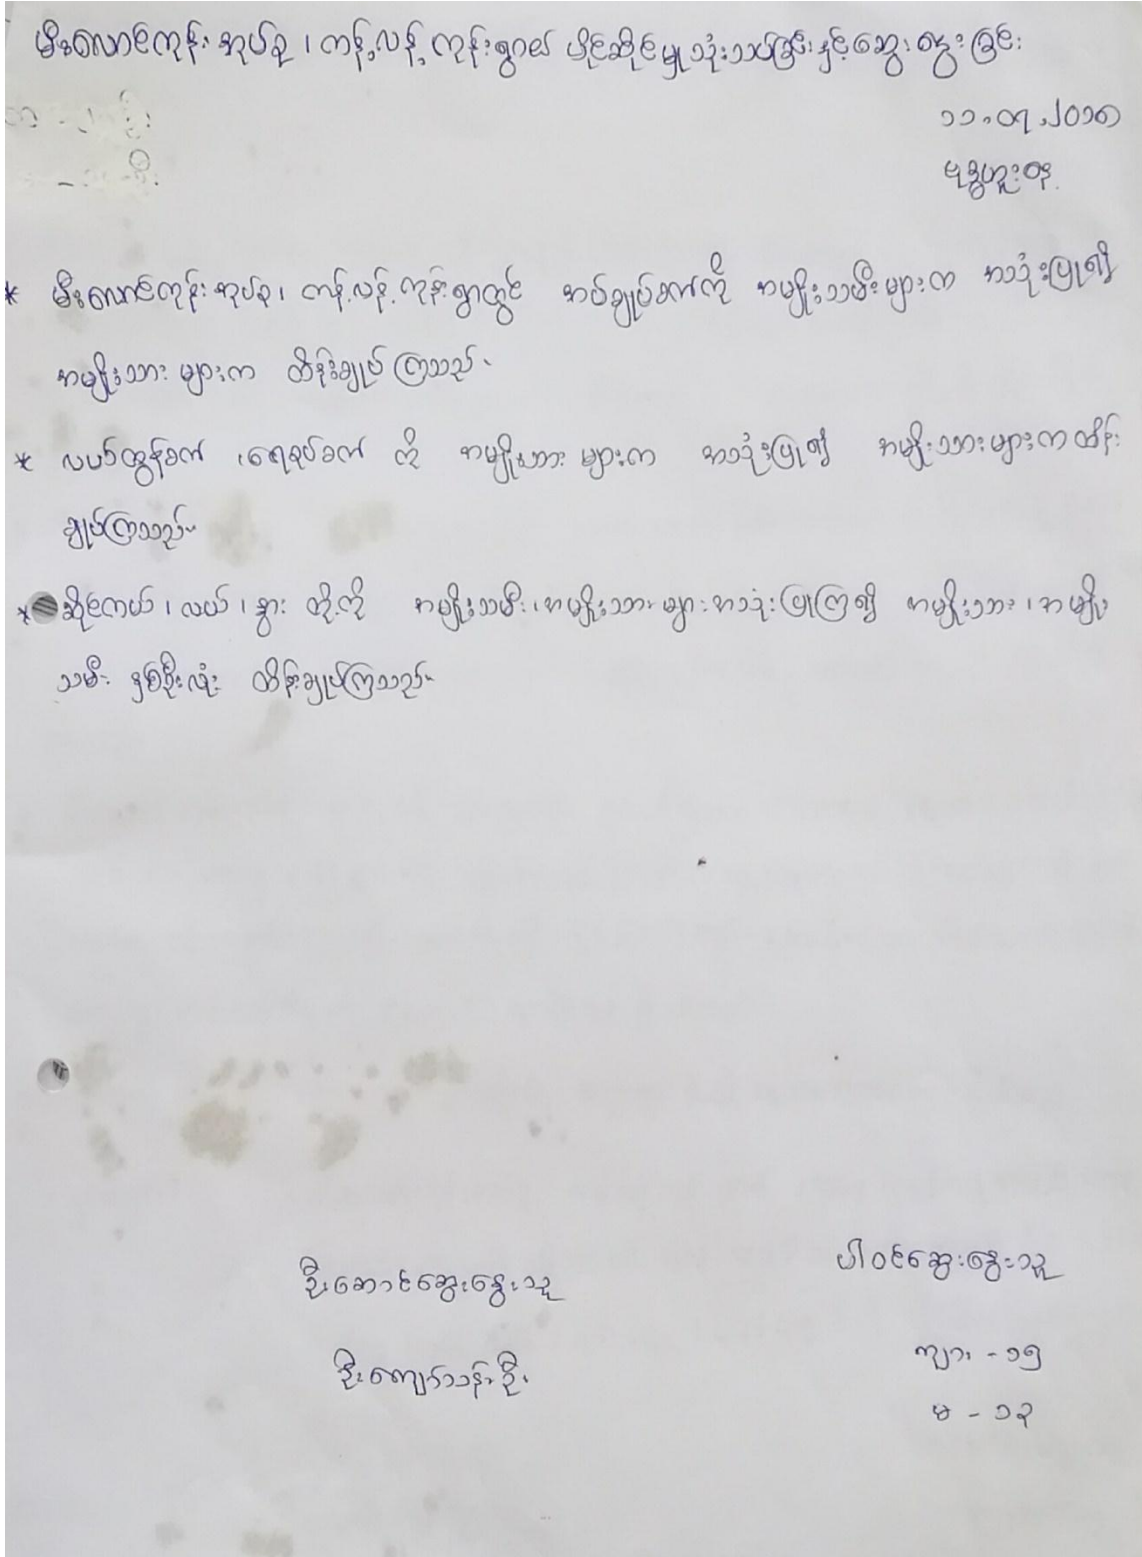 မီးလောင်ကုန်း အုပ်စု၊ ကန့်လန့် ကုန်းရွာ၏ ပိုင်ဆိုင်မှု သုံးသပ်ခြင်းနှင့်ဆွေးနွေးခြင်း
၁၁.၀၇.၂၀၁၈
ဗုဒ္ဓဟူးနေ့
* မီးလောင်ကုန်း အုပ်စု၊ ကန့်လန့် ကုန်းရွာတွင် အပ်ချုပ်စက်ကို အမျိုးသမီးများက အသုံးပြု၍
အမျိုးသားများက ထိန်းချုပ်ကြသည်။
* လယ်ထွန်စက် ၊ရေစုပ်စက် ကို အမျိုးသားများက အသုံးပြု၍ အမျိုးသားများကထိန်း
ချုပ်ကြသည်။
* ဆိုင်ကယ်၊ လယ်၊ နွား တို့ကို အမျိုးသမီး၊အမျိုးသားများအသုံးပြုကြ၍ အမျိုးသား၊အမျိုး
သမီး နှစ်ဦးလုံး ထိန်းချုပ်ကြသည်။
ပါဝင်ဆွေးနွေးသူ
ဦးဆောင်ဆွေးနွေးသူ
ကျား - ၁၅
ဦးကျော်သန်းဦး
မ - ၁၃